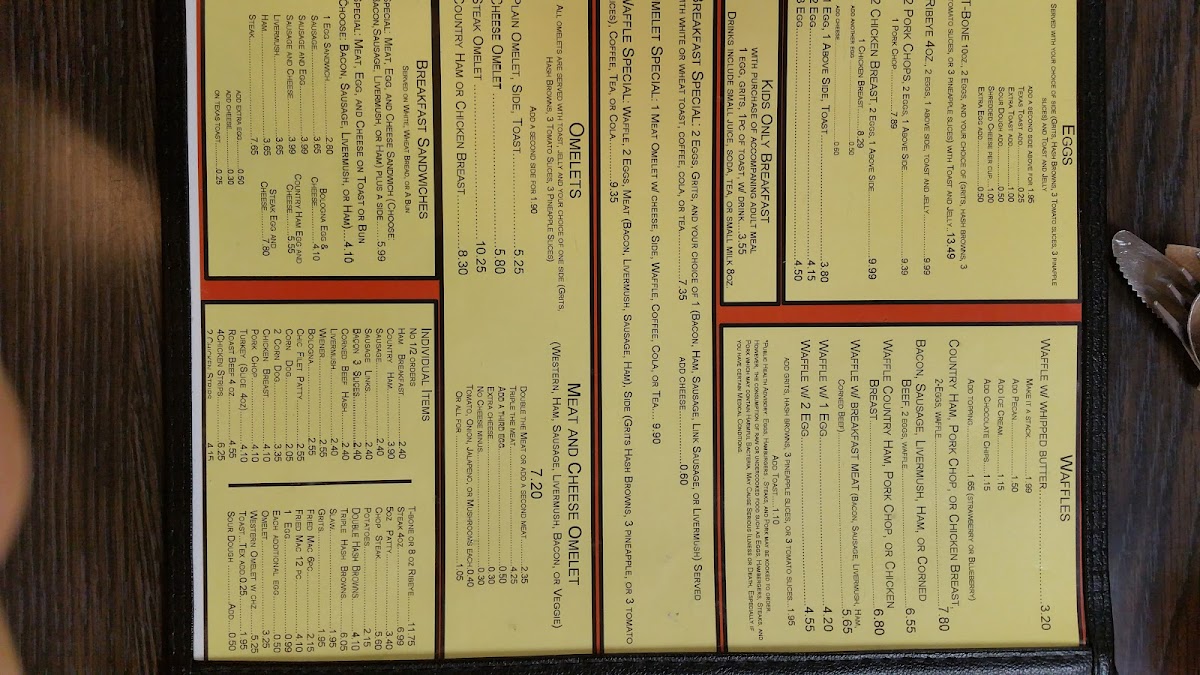 EGGS
SERVED WITH YOUR CHOICE OF SIDE (GRITS, HASH BROWNS, 3 TOMATO SLICES, 3 PINEAPPLE
SLICES) AND TOAST AND JELLY
ADD A SECOND SIDE ABOVE FOR 1.95
TEXAS TOAST ADD 0.25
EXTRA TOAST ADD 1.00
SOUR DOUGH ADD 0.50
SHREDDED CHEESE PER CUP 1.00
EXTRA EGG ADD .50
T-BONE 10OZ, 2 EGGS, AND YOUR CHOICE OF (GRITS, HASH BROWNS, 3
TOMATO SLICES, OR 3 PINEAPPLE SLICES) WITH TOAST AND JELLY 13.49
RIBEYE 4OZ, 2 EGGS, 1 ABOVE SIDE, TOAST AND JELLY 9.99
2 PORK CHOPS, 2 EGGS, 1 ABOVE SIDE 9.39
1 PORK CHOP 7.89
2 CHICKEN BREAST, 2 EGGS, 1 ABOVE SIDE 9.99
1 CHICKEN BREAST 8.29
ADD ANOTHER EGG 0.50
ADD CHEESE 0.60
1 EGG, 1 ABOVE SIDE, TOAST 3.80
2 EGG 4.15
3 EGG 4.50
KIDS ONLY BREAKFAST
WITH PURCHASE OF ACCOMPANYING ADULT MEAL
1 EGG, GRITS, 1PC OF TOAST W/ DRINK 3.55
DRINKS INCLUDE SMALL JUICE, SODA, TEA, OR SMALL MILK 8OZ.
WAFFLES
WAFFLE W/ WHIPPED BUTTER 3.20
MAKE IT A STACK 1.99
ADD PECAN 1.50
ADD ICE CREAM 1.15
ADD CHOCOLATE CHIPS 1.15
ADD TOPPING 1.65 (STRAWBERRY OR BLUEBERRY)
COUNTRY HAM, PORK CHOP, OR CHICKEN BREAST,
2-EGGS, WAFFLE 7.80
BACON, SAUSAGE, LIVERMUSH, HAM, OR CORNED
BEEF, 2 EGGS, WAFFLE 6.55
WAFFLE COUNTRY HAM, PORK CHOP, OR CHICKEN
BREAST 6.80
WAFFLE W/ BREAKFAST MEAT (BACON, SAUSAGE, LIVERMUSH, HAM,
CORNED BEEF) 5.65
WAFFLE W/ 1 EGG 4.20
WAFFLE W/ 2 EGG 4.55
ADD TOAST 1.10
ADD GRITS, HASH BROWNS, 3 PINEAPPLE SLICES, OR 3 TOMATO SLICES 1.95
*PUBLIC HEALTH ADVISORY: EGGS, HAMBURGERS, STEAKS, AND PORK MAY BE COOKED TO ORDER.
HOWEVER, THE CONSUMPTION OF RAW OR UNDERCOOKED FOOD SUCH AS EGGS, HAMBURGERS, STEAKS, AND
PORK WHICH MAY CONTAIN HARMFUL BACTERIA, MAY CAUSE SERIOUS ILLNESS OR DEATH, ESPECIALLY IF
YOU HAVE CERTAIN MEDICAL CONDITIONS.
BREAKFAST SPECIAL: 2 EGGS, GRITS, AND YOUR CHOICE OF 1 (BACON, HAM, SAUSAGE, LINK SAUSAGE, OR LIVERMUSH) SERVED
WITH WHITE OR WHEAT TOAST, COFFEE, COLA, OR TEA 7.35 ADD CHEESE 0.60
OMELET SPECIAL: 1 MEAT OMELET W/ CHEESE, SIDE, WAFFLE, COFFEE, COLA, OR TEA 9.90
WAFFLE SPECIAL: WAFFLE, 2 EGGS, MEAT (BACON, LIVERMUSH, SAUSAGE, HAM), SIDE (GRITS HASH BROWNS, 3 PINEAPPLE, OR 3 TOMATO
SLICES), COFFEE, TEA, OR COLA 9.35
OMELETS
ALL OMELETS ARE SERVED WITH TOAST, JELLY AND YOUR CHOICE OF ONE SIDE (GRITS,
HASH BROWNS, 3 TOMATO SLICES, 3 PINEAPPLE SLICES)
ADD A SECOND SIDE FOR 1.90
PLAIN OMELET, SIDE, TOAST 5.25
CHEESE OMELET 5.80
STEAK OMELET 10.25
COUNTRY HAM OR CHICKEN BREAST 8.30
MEAT AND CHEESE OMELET
(WESTERN, HAM, SAUSAGE, LIVERMUSH, BACON, OR VEGGIE)
7.20
DOUBLE THE MEAT OR ADD A SECOND MEAT 2.35
TRIPLE THE MEAT 4.25
ADD A THIRD EGG 0.50
EXTRA CHEESE 0.30
NO CHEESE MINUS 0.30
TOMATO, ONION, JALAPENO, OR MUSHROOMS EACH 0.40
OR ALL FOR 1.05
BREAKFAST SANDWICHES
SERVED ON WHITE, WHEAT BREAD, OR A BUN
SPECIAL: MEAT, EGG, AND CHEESE SANDWICH (CHOOSE:
BACON, SAUSAGE, LIVERMUSH, OR HAM) PLUS A SIDE 5.99
SPECIAL: MEAT, EGG, AND CHEESE ON TOAST OR BUN
(CHOOSE: BACON, SAUSAGE, LIVERMUSH, OR HAM) 4.10
1 EGG SANDWICH 2.80
SAUSAGE 3.65
SAUSAGE AND EGG 3.99
SAUSAGE AND CHEESE 3.99
LIVERMUSH 3.65
HAM 3.65
STEAK 7.65
BOLOGNA EGG &
CHEESE 4.10
COUNTRY HAM EGG AND
CHEESE 5.55
STEAK EGG AND
CHEESE 7.80
ADD EXTRA EGG 0.50
ADD CHEESE 0.30
ON TEXAS TOAST 0.25
INDIVIDUAL ITEMS
NO 1/2 ORDERS
HAM BREAKFAST 2.40
COUNTRY HAM 3.90
SAUSAGE 2.40
SAUSAGE LINKS 2.40
BACON 3 SLICES 2.40
CORNED BEEF HASH 2.40
LIVERMUSH 2.40
WIENER 2.55
BOLOGNA 2.55
CHIC FILET PATTY 2.55
CORN DOG 2.05
2 CORN DOG 3.35
CHICKEN BREAST 4.10
PORK CHOP 4.10
TURKEY (SLICE 4OZ) 4.10
ROAST BEEF 4 OZ 4.55
4CHICKEN STRIPS 6.25
2 CHICKEN STRIPS 4.15
T-BONE OR 8 OZ RIBEYE 11.75
STEAK 4OZ 6.99
5OZ PATTY 3.40
CHOP STEAK 5.60
POTATOES 2.15
DOUBLE HASH BROWNS 4.10
TRIPLE HASH BROWNS 6.05
SLAW 1.95
GRITS 1.95
FRIED MAC 6PC 2.15
FRIED MAC 12 PC 4.10
1 EGG 0.99
EACH ADDITIONAL EGG 0.50
OMELET 3.25
WESTERN OMELET W CHZ 5.25
TOAST TEX ADD 0.25 1.95
SOUR DOUGH ADD 0.50